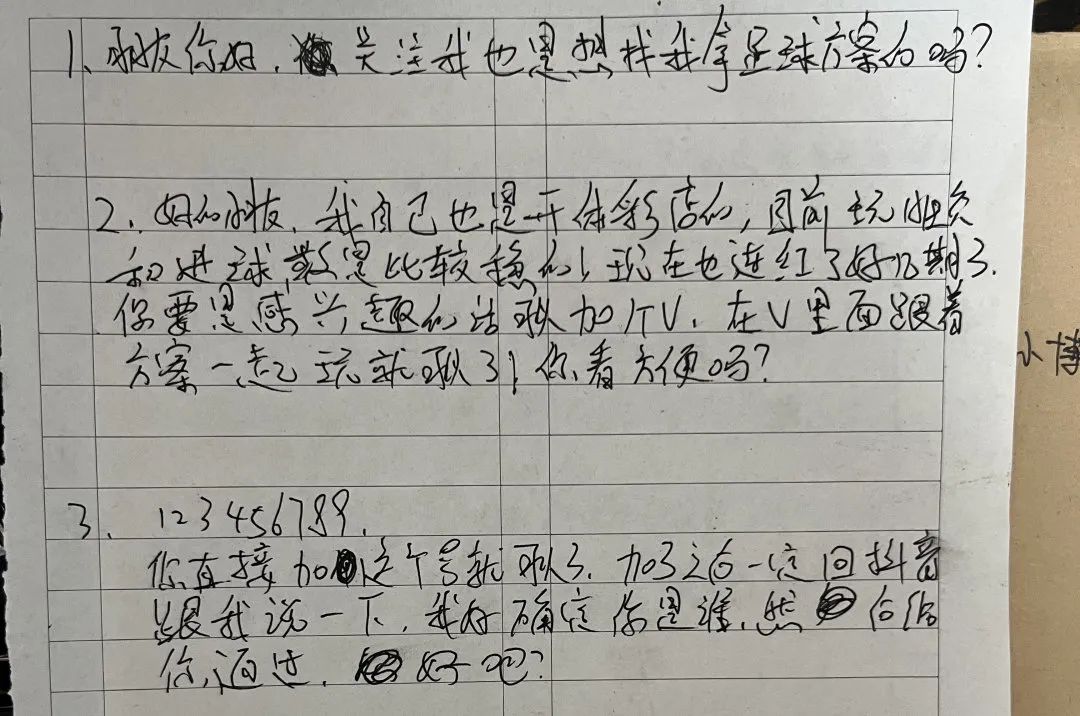 1、朋友你好，关注我也是想找我拿足球方案的吗？
2、好的朋友，我自己也是开体彩店的，目前玩胜负
和进球数是比较稳的，现在也连红了好几期了。
你要是感兴趣的话可以加个V，在V里面跟着
方案一起玩就可以了，你看方便吗？
3、123456789.
你直接加这个号就可以了，加了之后一定回抖音
跟我说一下，我好确定你是谁，然后给
你通过，好吧？
小博